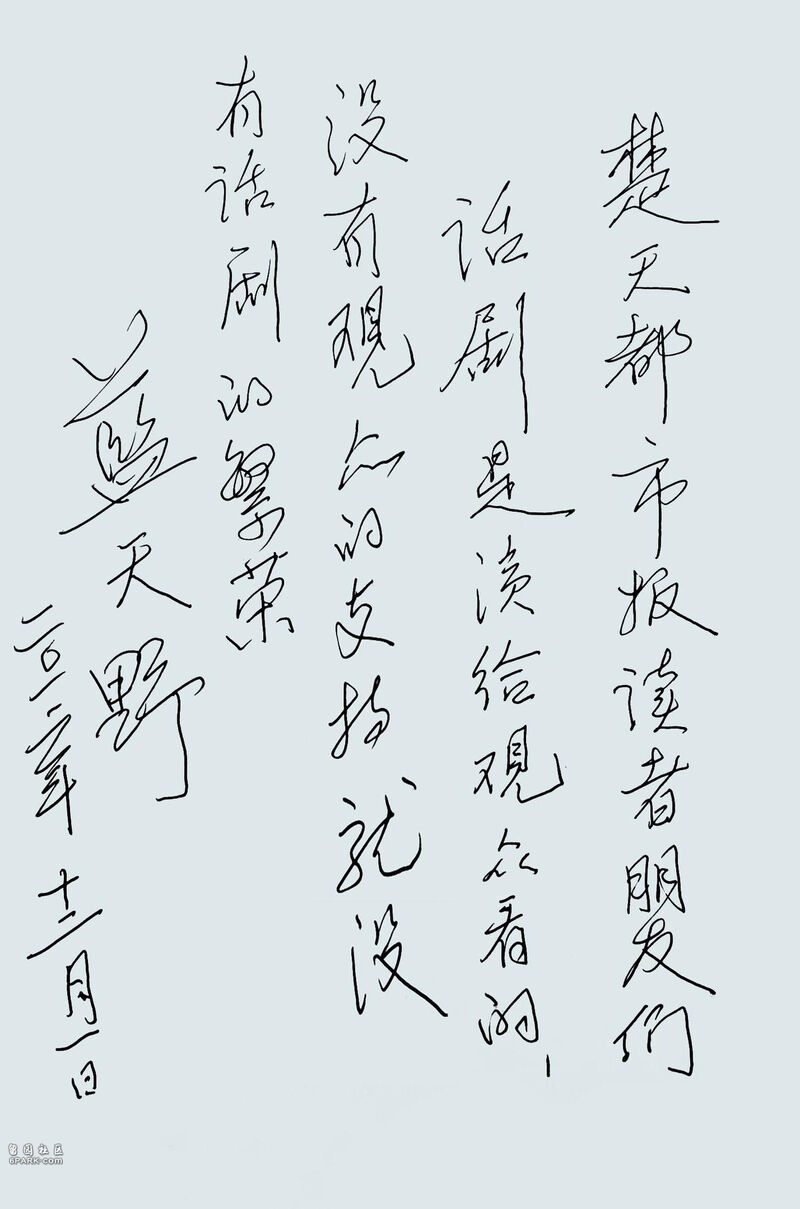 楚天都市报读者朋友们
话剧是演给观众看的，
没有观众的支持就没
有话剧的繁荣
蓝天野
二〇一六年十二月一日
留园社区
6PARK.com